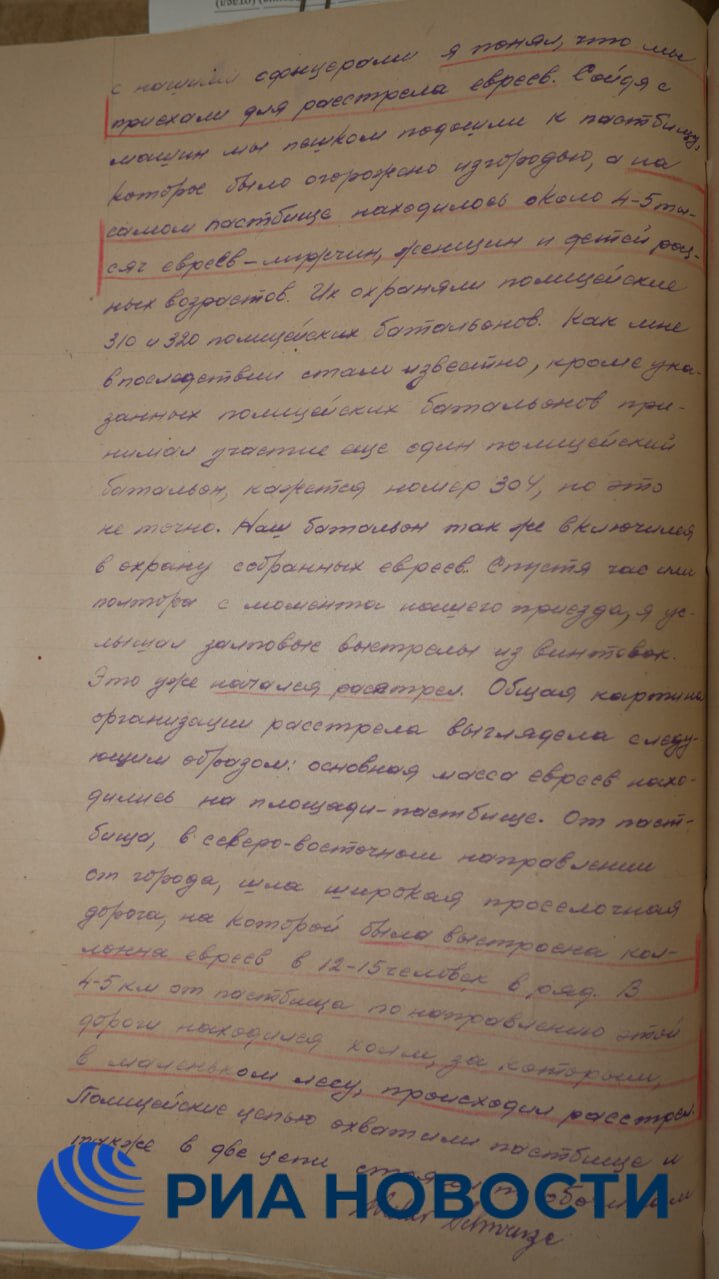 с нашими офицерами я понял, что мы
приехали для расстрела евреев. Сойдя с
машин мы пешком подошли к пастбищу,
которое было огорожено изгородью, а на
самом пастбище находилось около 4-5 ты-
сяч евреев – мужчин, женщин и детей раз-
ных возрастов. Их охраняли полицейские
310 и 320 полицейских батальонов. Как мне
впоследствии стало известно, кроме ука-
занных полицейских батальонов при-
нимал участие еще один полицейский
батальон, кажется номер 304, но это
не точно. Наш батальон так же включился
в охрану собранных евреев. Спустя час или
полтора с момента нашего приезда, я ус-
лышал залповые выстрелы из винтовок.
Это уже начался расстрел. Общая картина
организации расстрела выглядела следу-
ющим образом: основная масса евреев нахо-
дились на площади-пастбище. От паст-
бища, в северо-восточном направлении
от города, шла широкая проселочная
дорога, на которой была выстроена кол-
лонна евреев в 12-15 человек в ряд. В
4-5 км от пастбища по направлению этой
дороги находился холм, за которым,
в маленьком лесу, происходил расстрел.
Полицейские цепью охватили пастбище и
также в две цепи
РИА НОВОСТИ